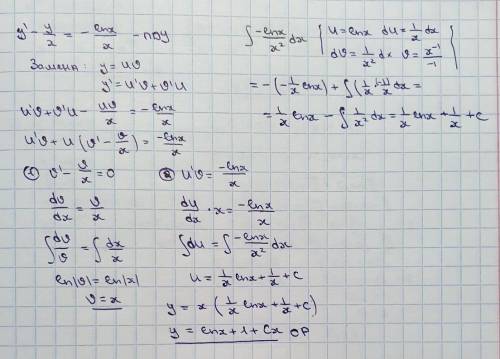 y' - y/x = - lnx/x - ЛДУ
Замена: y = uv
y' = u'v + v'u
u'v + v'u - uv/x = -lnx/x
u'v + u (v' - v/x) = -lnx/x
① v' - v/x = 0
dv/dx = v/x
∫ dv/v = ∫ dx/x
ln|v| = ln|x|
v = x
② u'v = -lnx/x
du/dx · x = -lnx/x
∫ du = ∫ -lnx/x² dx
u = 1/x lnx + 1/x + c
y = x (1/x lnx + 1/x + c)
y = lnx + 1 + Cx ОР
∫ -lnx/x² dx { u = lnx du = 1/x dx
dv = 1/x² dx v = x⁻¹/-1 }
= -(-1/x lnx) + ∫ (1/x · (-1)/x dx =
= 1/x lnx - ∫ 1/x² dx = 1/x lnx + 1/x + c